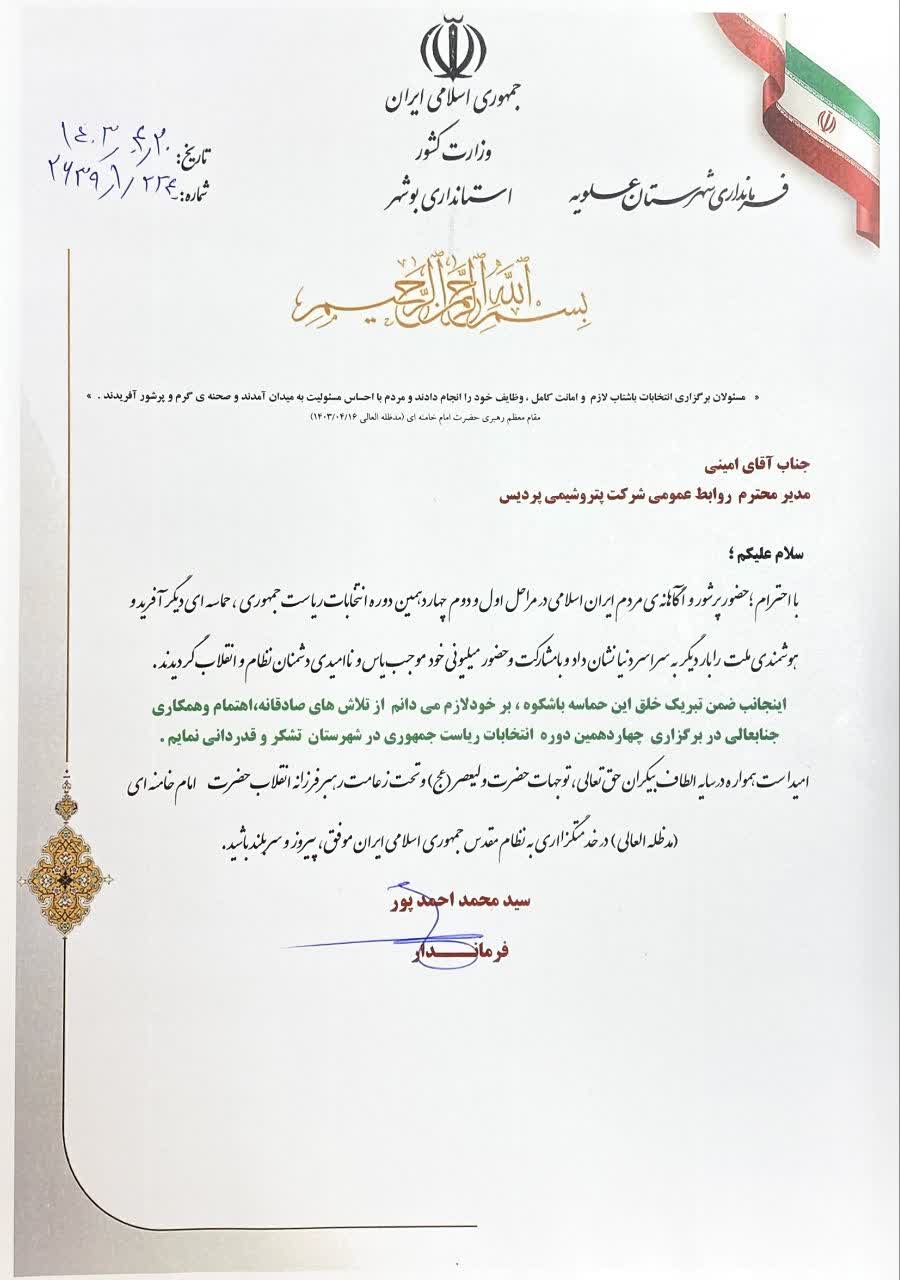 جمهوری اسلامی ایران
وزارت کشور
استانداری بوشهر
فرمانداری شهرستان عسلویه
تاریخ: ۱۴۰۳/۴/۲۰
شماره: ۲۶۳۹/۱/۲۲۴
بسم الله الرحمن الرحیم
« مسئولان برگزاری انتخابات باشتاب لازم و امانت کامل ، وظایف خود را انجام دادند و مردم با احساس مسئولیت به میدان آمدند و صحنه ی گرم و پرشور آفریدند . »
مقام معظم رهبری حضرت امام خامنه ای (مدظله العالی ۱۴۰۳/۰۴/۱۶)
جناب آقای امینی
مدیر محترم روابط عمومی شرکت پتروشیمی پردیس
سلام علیکم ؛
با احترام ؛ حضور پرشور و آگاهانه ی مردم ایران اسلامی در مراحل اول و دوم چهاردهمین دوره انتخابات ریاست جمهوری ، حماسه ای دیگر آفرید و
هوشمندی ملت را بار دیگر به سراسر دنیا نشان داد و با مشارکت و حضور میلیونی خود موجب یاس و ناامیدی دشمنان نظام و انقلاب گردیدند .
اینجانب ضمن تبریک خلق این حماسه باشکوه ، بر خودلازم می دانم از تلاش های صادقانه،اهتمام وهمکاری
جنابعالی در برگزاری چهاردهمین دوره انتخابات ریاست جمهوری در شهرستان تشکر و قدردانی نمایم .
امید است همواره در سایه الطاف بیکران حق تعالی، توجهات حضرت ولیعصر(عج) و تحت زعامت رهبر فرزانه انقلاب حضرت امام خامنه ای
(مدظله العالی) در خدمتگزاری به نظام مقدس جمهوری اسلامی ایران موفق، پیروز و سربلند باشید.
سید محمد احمد پور
فرماندار